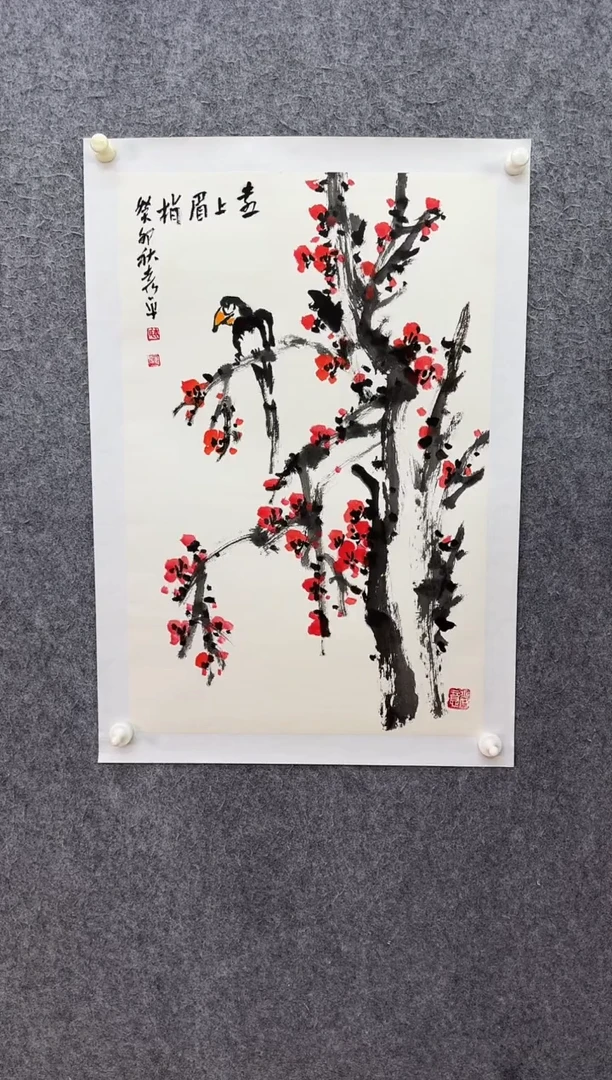 喜上眉梢
癸卯秋 平